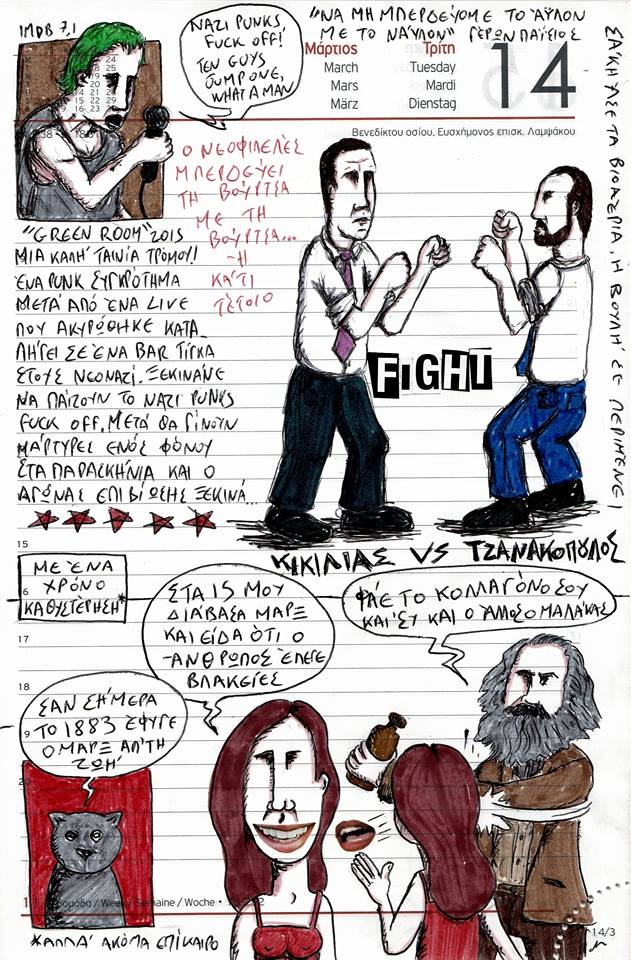 IMDB 7,1
NAZI PUNKS
FUCK OFF!
TEN GUYS
JUMP ONE,
WHAT A MAN
"ΝΑ ΜΗ ΜΠΕΡΔΕΥΟΜΕ ΤΟ ΑΫΛΟΝ
ΜΕ ΤΟ ΝΑΫΛΟΝ" ΓΕΡΩΝ ΠΑΪΣΙΟΣ
Μάρτιος Τρίτη
March Tuesday
Mars Mardi
März Dienstag
14
Βενεδίκτου οσίου, Ευσχήμονος επισκ. Λαμψάκου
ΣΑΚΗ ΑΣΕ ΤΑ ΒΙΟΑΕΡΙΑ, Η ΒΟΥΛΗ ΣΕ ΠΕΡΙΜΕΝΕΙ
Ο ΝΕΟΦΙΛΕΛΕΣ
ΜΠΕΡΔΕΥΕΙ
ΤΗ ΒΟΥΡΤΣΑ
ΜΕ ΤΗ
ΒΟΥΡΤΣΑ...
Ή
ΚΑΤΙ
ΤΕΤΟΙΟ
"GREEN ROOM" 2015
ΜΙΑ ΚΑΛΗ ΤΑΙΝΙΑ ΤΡΟΜΟΥ!
ΕΝΑ PUNK ΣΥΓΚΡΟΤΗΜΑ
ΜΕΤΑ ΑΠΟ ΕΝΑ LIVE
ΠΟΥ ΑΚΥΡΩΘΗΚΕ ΚΑΤΑ
ΛΗΓΕΙ ΣΕ ΕΝΑ BAR ΤΙΓΚΑ
ΣΤΟΥΣ ΝΕΟΝΑΖΙ. ΞΕΚΙΝΑΝΕ
ΝΑ ΠΑΙΖΟΥΝ ΤΟ NAZI PUNKS
FUCK OFF. ΜΕΤΑ ΘΑ ΓΙΝΟΥΝ
ΜΑΡΤΥΡΕΣ ΕΝΟΣ ΦΟΝΟΥ
ΣΤΑ ΠΑΡΑΣΚΗΝΙΑ ΚΑΙ Ο
ΑΓΩΝΑΣ ΕΠΙΒΙΩΣΗΣ ΞΕΚΙΝΑ...
FIGHT
ΚΙΚΙΛΙΑΣ VS ΤΖΑΝΑΚΟΠΟΥΛΟΣ
15
17
18
ΜΕ ΕΝΑ
ΧΡΟΝΟ
ΚΑΘΥΣΤΕΡΗΣΗ*
ΣΤΑ 15 ΜΟΥ
ΔΙΑΒΑΣΑ ΜΑΡΞ
ΚΑΙ ΕΙΔΑ ΟΤΙ Ο
ΑΝΘΡΩΠΟΣ ΕΛΕΓΕ
ΒΛΑΚΕΙΕΣ
ΦΑΕ ΤΟ ΚΟΛΛΑΓΟΝΟ ΣΟΥ
ΚΑΙ ΕΣΥ ΚΑΙ Ο ΑΛΛΟΣ Ο ΜΑΛΑΚΑΣ
ΣΑΝ ΣΗΜΕΡΑ
ΤΟ 1883 ΕΦΥΓΕ
Ο ΜΑΡΞ ΑΠ'ΤΗ
ΖΩΗ
Week / Semaine / Woche
*ΑΛΛΑ ΑΚΟΜΑ ΕΠΙΚΑΙΡΟ
14/3